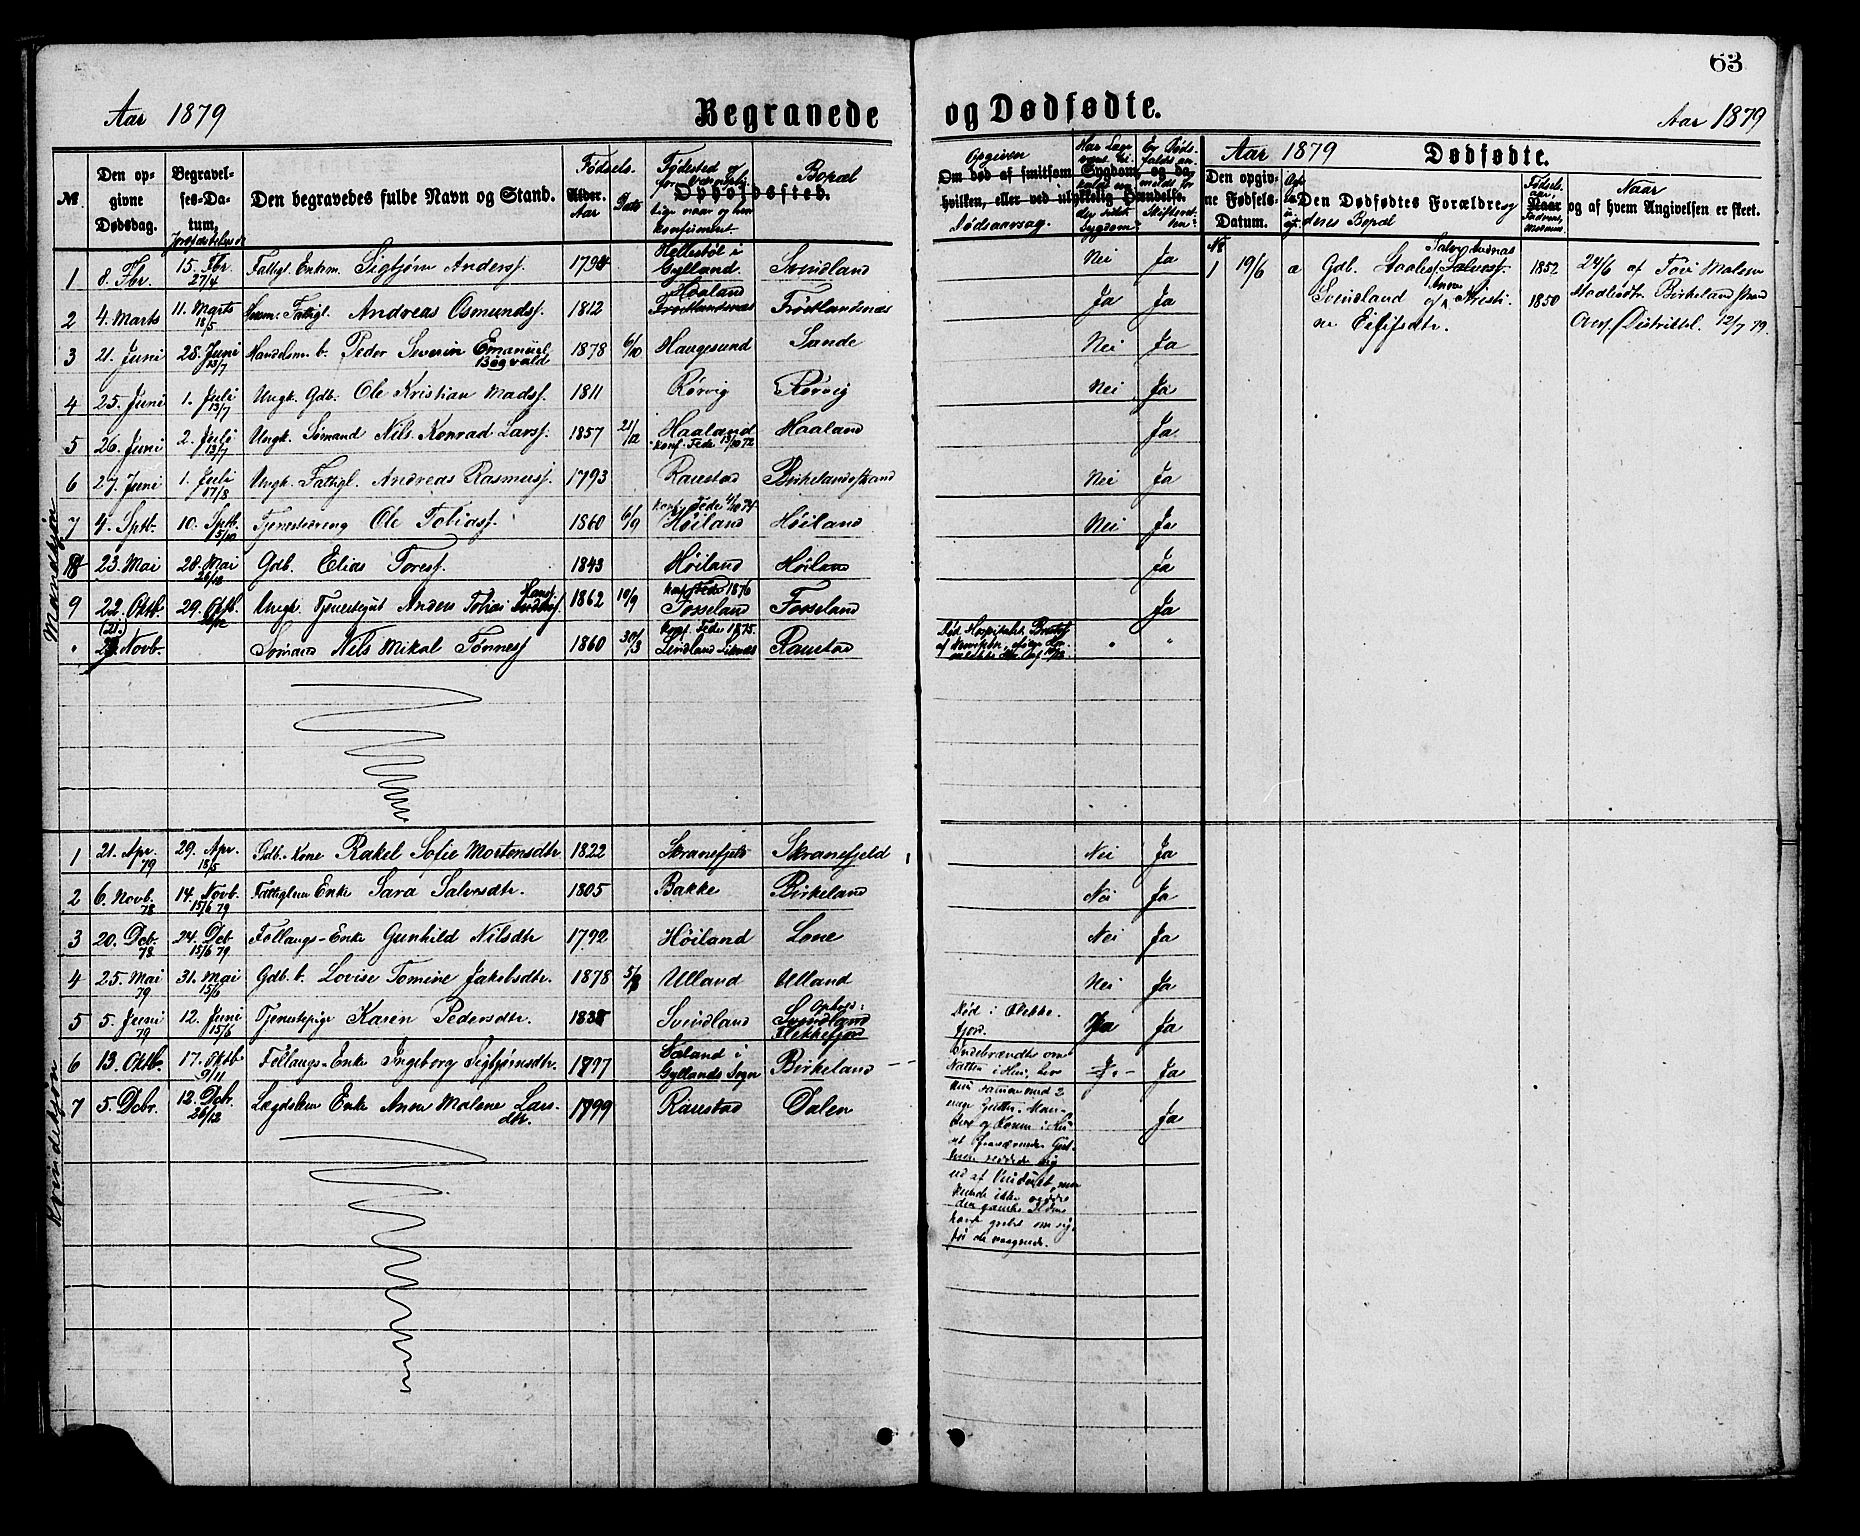 63
Aar 1879 Begravede og Dødfødte. Aar 1879
№ Den opgivne Dødsdag. Begravelses-Datum, Jordfæstelsesd. Den begravedes fulde Navn og Stand. Fødsels- Alder. Aar Dato Fødested og Bopæl Opholdssted.
Opgiven Dødsaarsag. Om død af smitsom Sygdom, og da hvilken, eller ved ulykkelig Hændelse.
Aar 1879 Dødfødte.
Den opgivne Fødsels-Datum. Den Dødfødtes Forældre og deres Bopæl Naar og af hvem Angivelsen er skeet.
Mandkjøn
1 8. Fbr. 15. Fbr. 27/4 Fattigl. Enkem. Sigbjørn Andersf. 1794 Hellestøl i Gylland. Svindland Nei Ja
2 4. Marts 11. Marts 18/5 Fattigl. Andreas Osmundsf. 1812 Haaland Frøitlandsnæs Frøitlandsnæs Ja Ja
3 21. Juni 28. Juni 13/7 Handelsm. b. Peder Severin Emanuel Bogvald 1878 6/10 Haugesund Sande Nei Ja
4 25. Juni 1. Juli 13/7 Ungk. Gdb. Ole Kristian Madsf. 1811 Rørvig Rørvig Nei Ja
5 26. Juni 2. Juli 13/7 Ungk. Sømand Nils Konrad Larsf. 1857 21/12 Haaland Konf. Fede 13/10 72 Haaland Ja
6 27. Juni 1. Juli 17/8 Ungk. Fattigl. Andreas Rasmusf. 1793 Raustad Birkelandsstrand Nei Ja
7 4. Sptb. 10. Sptb. 5/10 Tjenestedreng Ole Tobiasf. 1860 6/9 Konf. Fede 4/10 74 Høiland Høiland Nei Ja
8 23. Mai 28. Mai 26/12 Gdb. Elias Toresf. 1843 Høiland Høiland Ja
9 22. Oktb. 29. Oktb. Ungk. Tjenestegut Anders Tobias Hansf. 1862 10/9 Konf. Fede 1876 Fosseland Fosseland Ja
" (21.) Novb. Sømand Nils Mikal Tønnesf. 1860 30/3 Konf. Fede 1875. Lindland Raustad Død. Hospitalet " "
Kvindekjøn
1 21. Apr. 79 29. Apr. 18/5 Gdb. Kone Rakel Sofie Mortensdtr 1822 Skranefjeld Skranefjeld Nei Ja
2 6. Novb. 78 14. Novb. 15/6 79 Fattiglem Enke Sara Salvesdtr. 1805 Bakke Birkeland Nei Ja
3 20. Dcb. 78 24. Dcb 15/6 79 Føllaugs-Enke Gunhild Nilsdtr 1792 Høiland Lone Nei Ja
4 25. Mai 79 31. Mai 15/6 Gdb. b. Lovise Tomine Jakobsdtr. 1878 Ulland Ulland Nei Ja
5 5. Juni 79 12. Juni 15/6 Tjenestepige Karen Pedersdtr. 1838 Svindland Ophold: Svindland Flekkefjord Død i Flekkefjord. Ja Ja
6 13. Oktb. 17. Oktb 9/11 Føllaugs-Enke Ingeborg Sigbjørnsdtr. 1797 Gyllands Sogn Birkeland Indebrændte om Natten i Hus, Ja
7 5. Dcbr. 12. Dcbr. 26/12 Lægdslem Enke Anne Malene Larsdtr. 1799 Raustad Dalen Ja
hun sammen med 2
unge Gutter. Manden og Konen i Huset
reddede sig
ud af Vinduet, men
kunde ikke redde
havde grebet om sig,
før de vaagnede.
№ 1 19/6 a Gdb. Svindland og Anne Kristine Eilifsdtr. 1852 1850 24/6 af Tori Malene Birkeland strand 12/7 79.